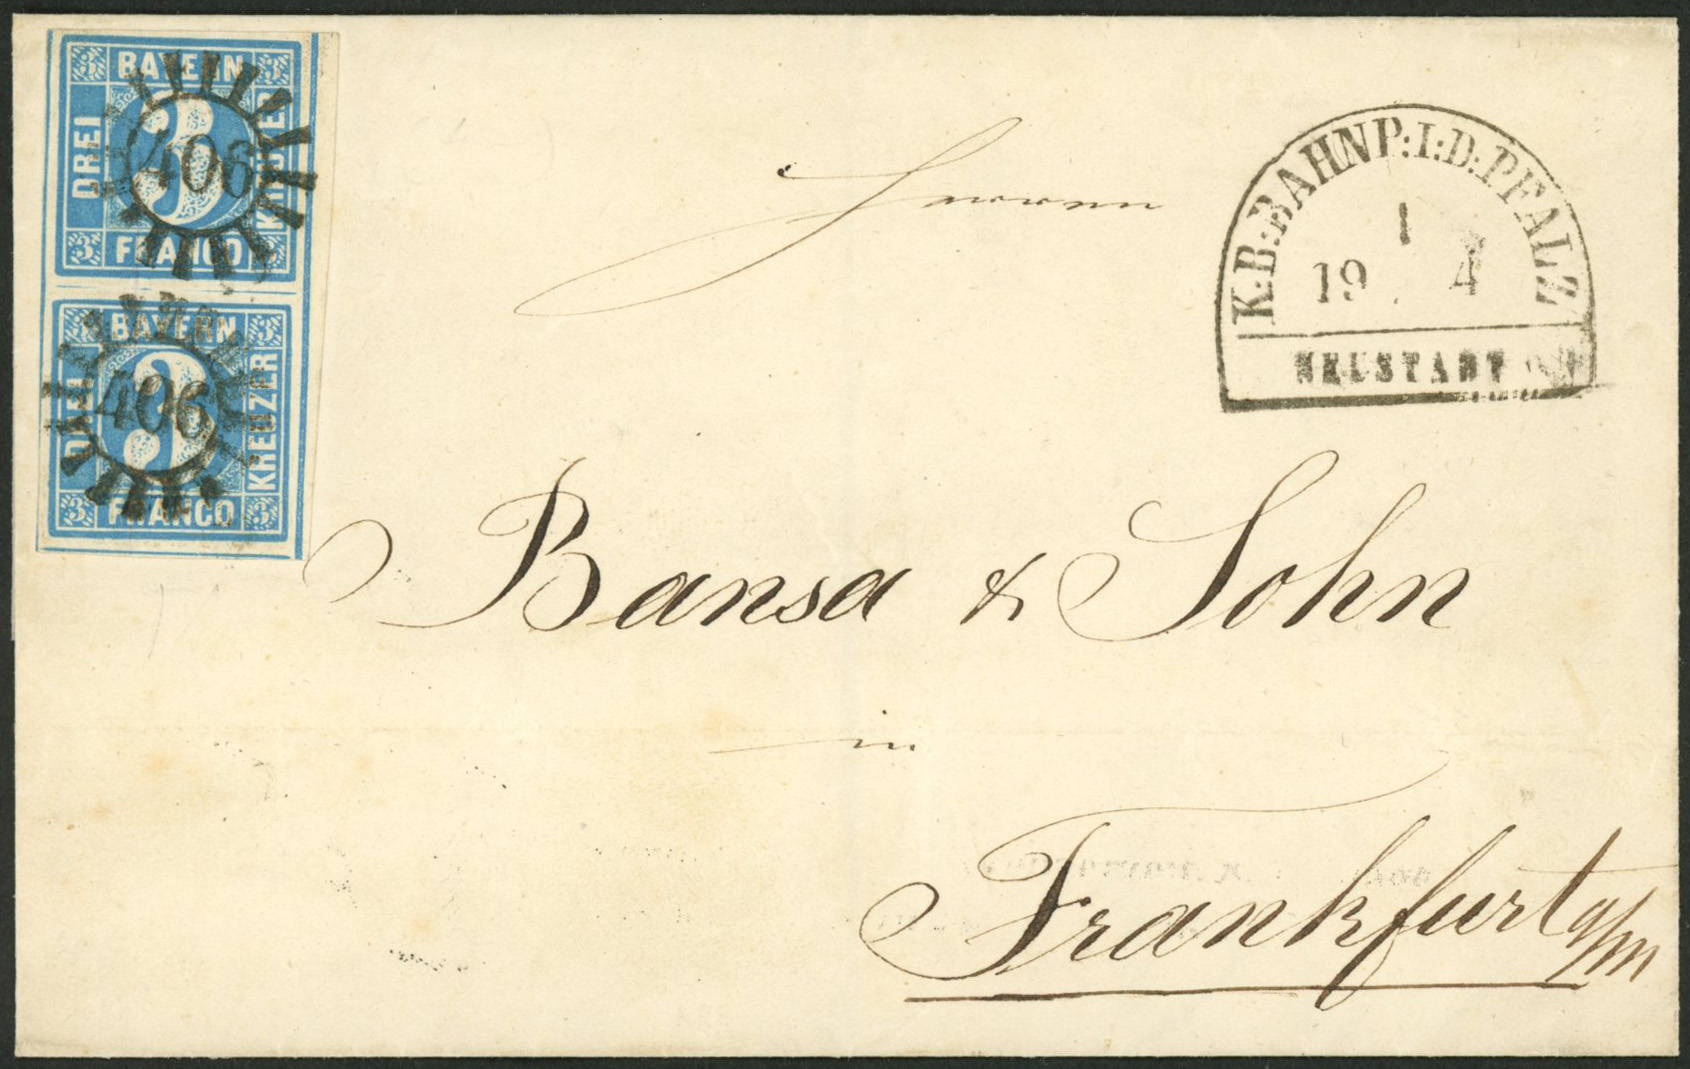 3 BAYERN 3
DREI 3 KREUZER
3 FRANCO
406
3 BAYERN 3
DREI 3 KREUZER
3 FRANCO 3
406
K.B.BAHNP:I:D:PFALZ
1
19 4
NEUSTADT
Herren
Bansa & Sohn
in
Frankfurt a/m